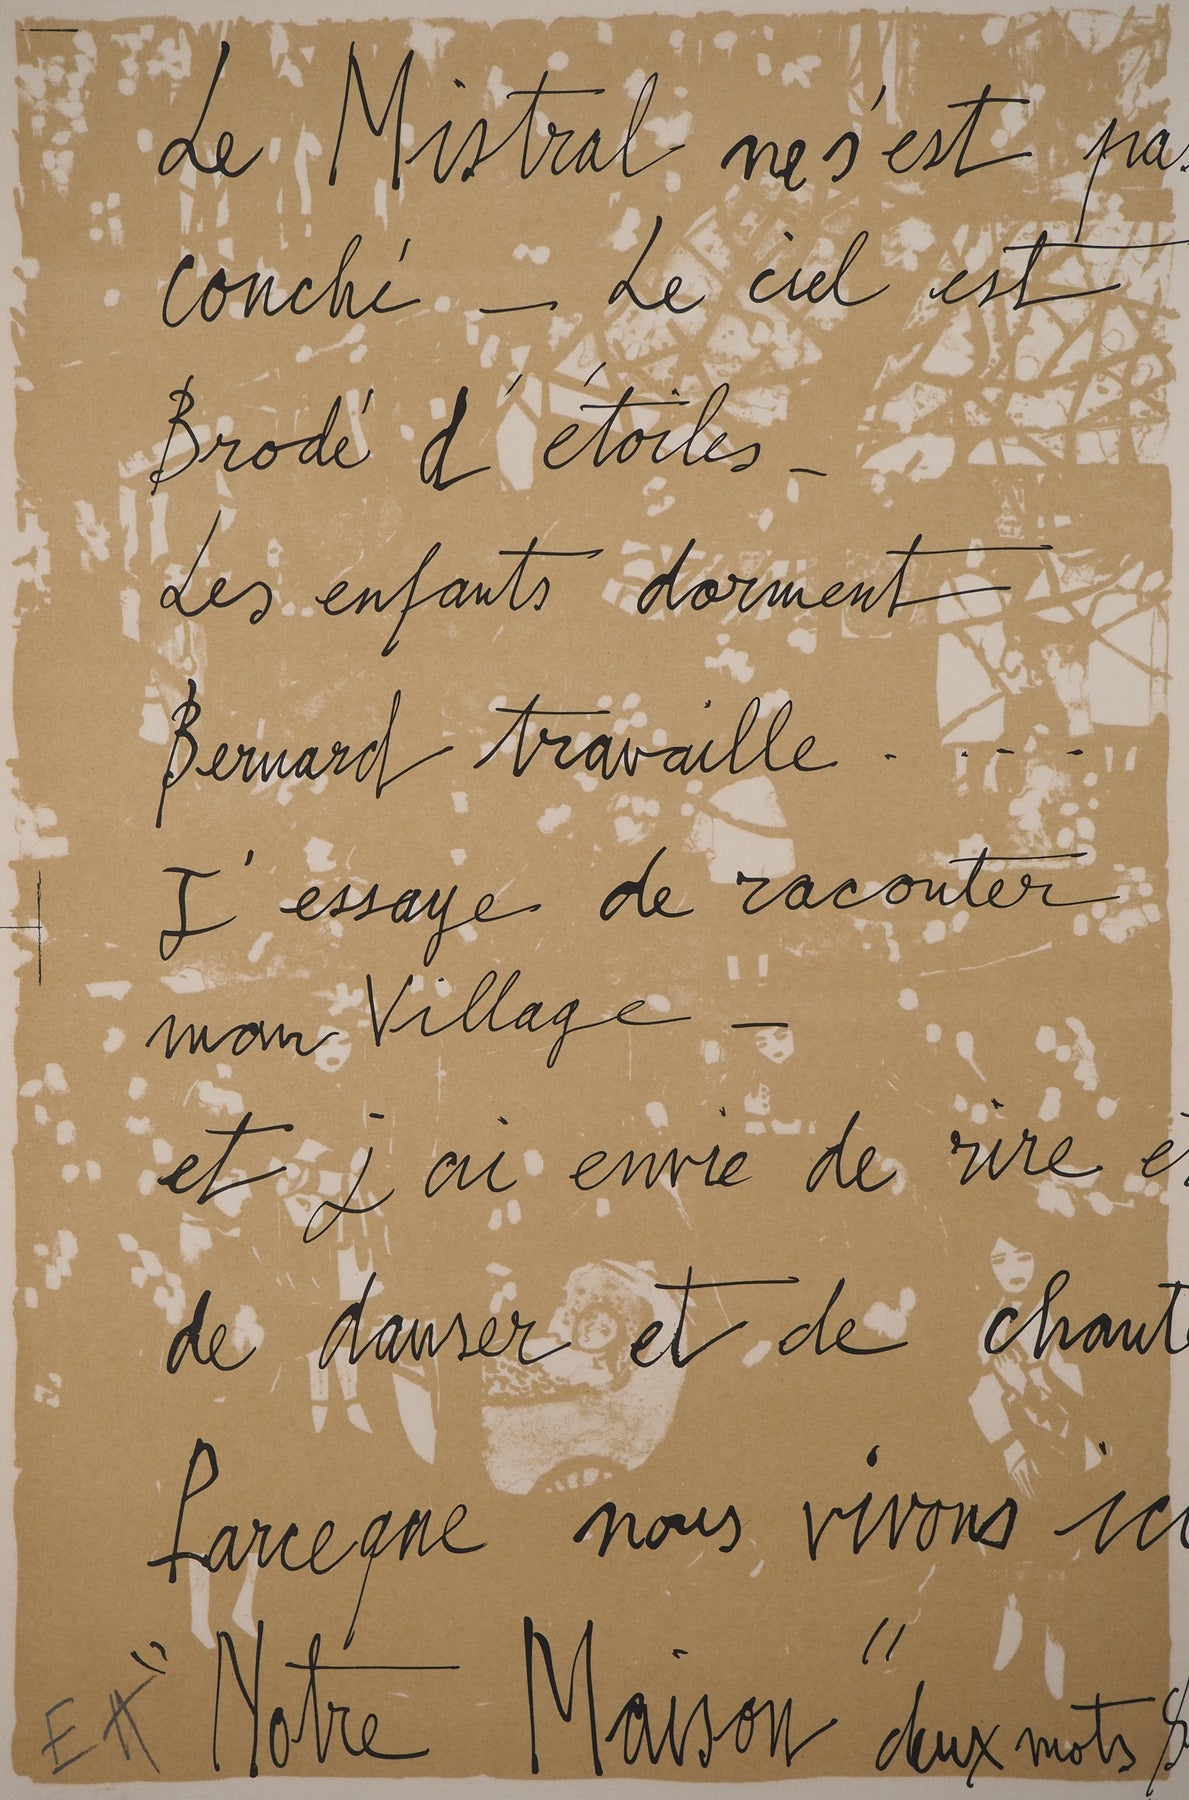 Le Mistral ne s'est pas
couché _ Le ciel est
Brodé d'étoiles _
Les enfants dorment
Bernard travaille . . - . -
J'essaye de raconter
mon Village _
et j'ai envie de rire et
de danser et de chante
Parceque nous vivons ici
"Notre Maison" deux mots
EA